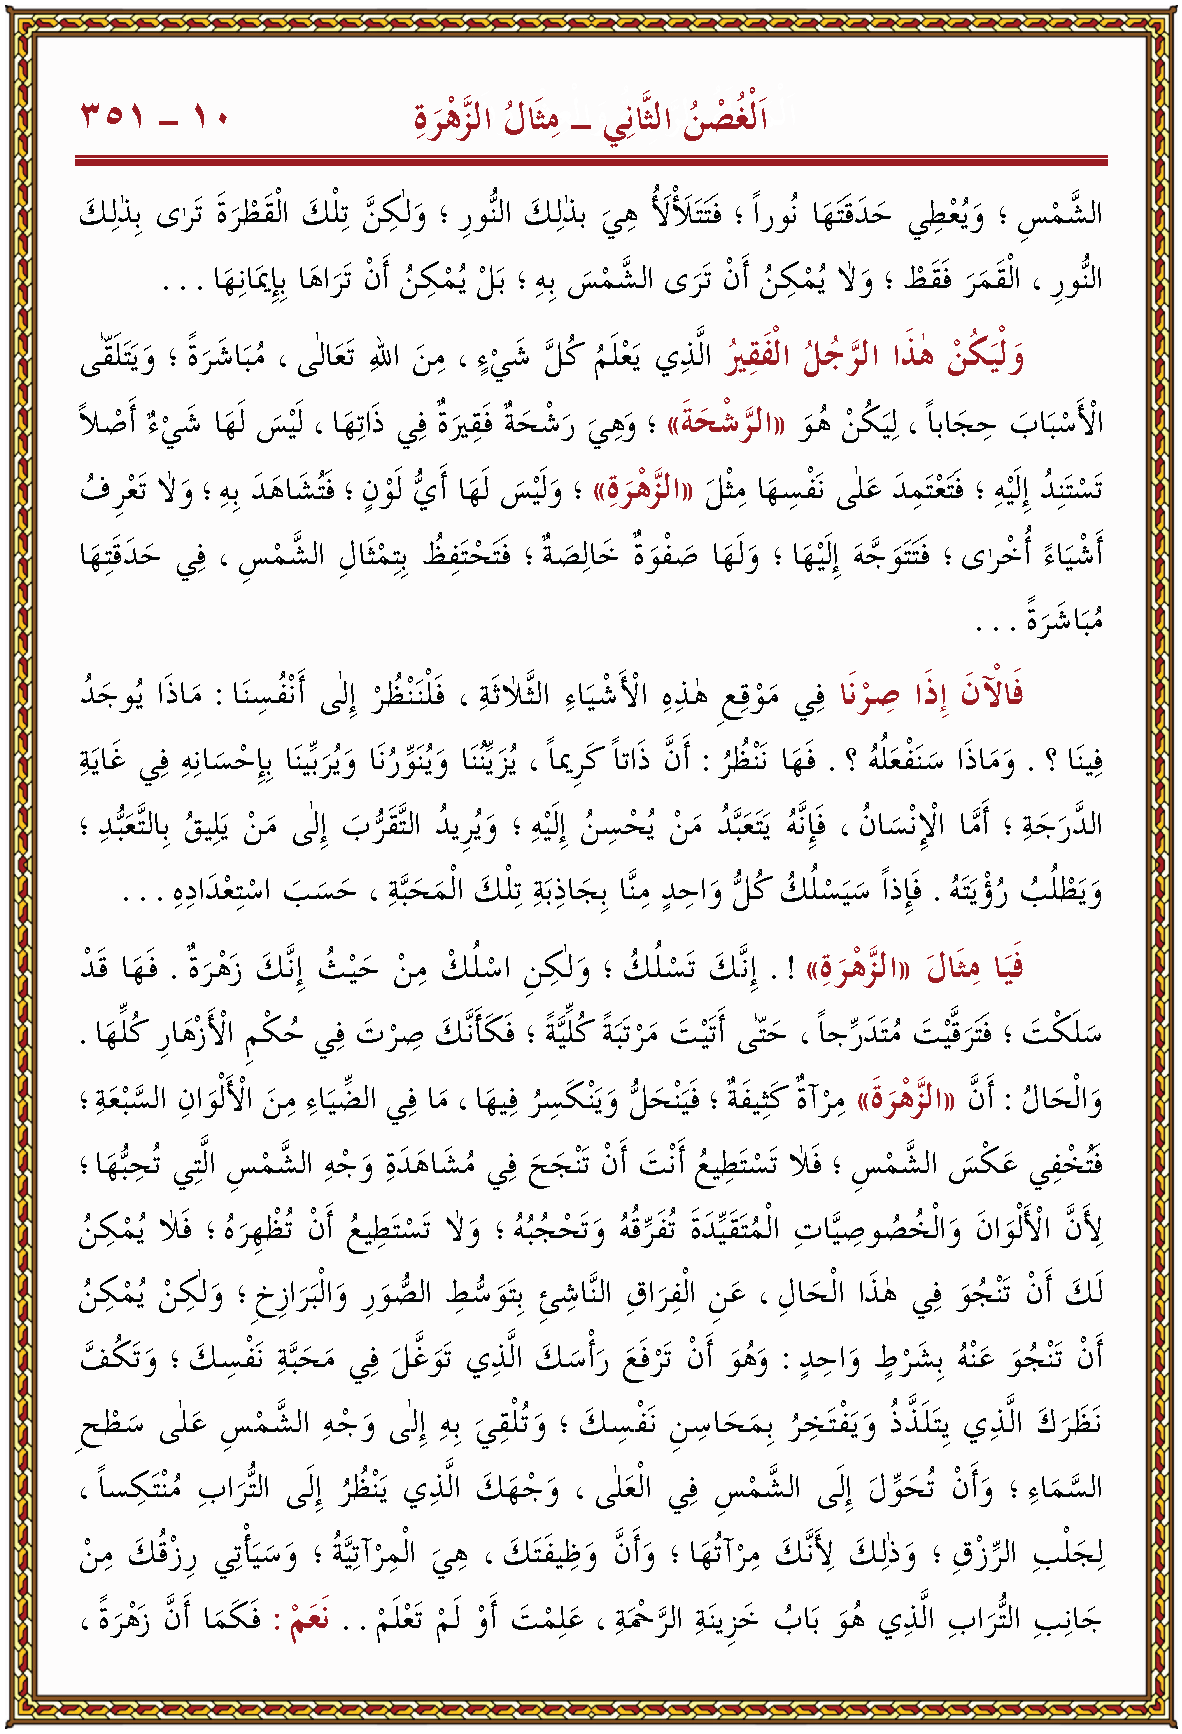 اَلْغُصْنُ الثَّانِي ـ مِثَالُ الزَّهْرَةِ ١٠ ـ ٣٥١
الشَّمْسِ ؛ وَيُعْطِي حَدَقَتَهَا نُوراً ؛ فَتَتَلَأْلَأُ هِيَ بذٰلِكَ النُّورِ ؛ وَلٰكِنَّ تِلْكَ الْقَطْرَةَ تَرٰى بِذٰلِكَ
النُّورِ ، الْقَمَرَ فَقَطْ ؛ وَلاٰ يُمْكِنُ أَنْ تَرَى الشَّمْسَ بِهِ ؛ بَلْ يُمْكِنُ أَنْ تَرَاهَا بِإِيمَانِهَا . . .
وَلْيَكُنْ هٰذَا الرَّجُلُ الْفَقِيرُ الَّذِي يَعْلَمُ كُلَّ شَيْءٍ ، مِنَ اللهِ تَعَالٰى ، مُبَاشَرَةً ؛ وَيَتَلَقَّى
الْأَسْبَابَ حِجَاباً ، لِيَكُنْ هُوَ «الرَّشْحَةَ» ؛ وَهِيَ رَشْحَةٌ فَقِيرَةٌ فِي ذَاتِهَا ، لَيْسَ لَهَا شَيْءٌ أَصْلاً
تَسْتَنِدُ إِلَيْهِ ؛ فَتَعْتَمِدَ عَلٰى نَفْسِهَا مِثْلَ «الزَّهْرَةِ» ؛ وَلَيْسَ لَهَا أَيُّ لَوْنٍ ؛ فَتُشَاهَدَ بِهِ ؛ وَلاٰ تَعْرِفُ
أَشْيَاءً أُخْرٰى ؛ فَتَتَوَجَّهَ إِلَيْهَا ؛ وَلَهَا صَفْوَةٌ خَالِصَةٌ ؛ فَتَحْتَفِظُ بِتِمْثَالِ الشَّمْسِ ، فِي حَدَقَتِهَا
مُبَاشَرَةً . . .
فَالْآنَ إِذَا صِرْنَا فِي مَوْقِعِ هٰذِهِ الْأَشْيَاءِ الثَّلاٰثَةِ ، فَلْنَنْظُرْ إِلٰى أَنْفُسِنَا : مَاذَا يُوجَدُ
فِينَا ؟ . وَمَاذَا سَنَفْعَلُهُ ؟ . فَهَا نَنْظُرُ : أَنَّ ذَاتاً كَرِيماً ، يُزَيِّنُنَا وَيُنَوِّرُنَا وَيُرَبِّينَا بِإِحْسَانِهِ فِي غَايَةِ
الدَّرَجَةِ ؛ أَمَّا الْإِنْسَانُ ، فَإِنَّهُ يَتَعَبَّدُ مَنْ يُحْسِنُ إِلَيْهِ ؛ وَيُرِيدُ التَّقَرُّبَ إِلٰى مَنْ يَلِيقُ بِالتَّعَبُّدِ ؛
وَيَطْلُبُ رُؤْيَتَهُ . فَإِذاً سَيَسْلُكُ كُلُّ وَاحِدٍ مِنَّا بِجَاذِبَةِ تِلْكَ الْمَحَبَّةِ ، حَسَبَ اسْتِعْدَادِهِ . . .
فَيَا مِثَالَ «الزَّهْرَةِ» ! . إِنَّكَ تَسْلُكُ ؛ وَلٰكِنِ اسْلُكْ مِنْ حَيْثُ إِنَّكَ زَهْرَةٌ . فَهَا قَدْ
سَلَكْتَ ؛ فَتَرَقَّيْتَ مُتَدَرِّجاً ، حَتّٰى أَتَيْتَ مَرْتَبَةً كُلِّيَّةً ؛ فَكَأَنَّكَ صِرْتَ فِي حُكْمِ الْأَزْهَارِ كُلِّهَا .
وَالْحَالُ : أَنَّ «الزَّهْرَةَ» مِرْآةٌ كَثِيفَةٌ ؛ فَيَنْحَلُّ وَيَنْكَسِرُ فِيهَا ، مَا فِي الضِّيَاءِ مِنَ الْأَلْوَانِ السَّبْعَةِ ؛
فَتُخْفِي عَكْسَ الشَّمْسِ ؛ فَلاٰ تَسْتَطِيعُ أَنْتَ أَنْ تَنْجَحَ فِي مُشَاهَدَةِ وَجْهِ الشَّمْسِ الَّتِي تُحِبُّهَا ؛
لِأَنَّ الْأَلْوَانَ وَالْخُصُوصِيَّاتِ الْمُتَقَيِّدَةَ تُفَرِّقُهُ وَتَحْجُبُهُ ؛ وَلاٰ تَسْتَطِيعُ أَنْ تُظْهِرَهُ ؛ فَلاٰ يُمْكِنُ
لَكَ أَنْ تَنْجُوَ فِي هٰذَا الْحَالِ ، عَنِ الْفِرَاقِ النَّاشِئِ بِتَوَسُّطِ الصُّوَرِ وَالْبَرَازِخِ ؛ وَلٰكِنْ يُمْكِنُ
أَنْ تَنْجُوَ عَنْهُ بِشَرْطٍ وَاحِدٍ : وَهُوَ أَنْ تَرْفَعَ رَأْسَكَ الَّذِي تَوَغَّلَ فِي مَحَبَّةِ نَفْسِكَ ؛ وَتَكُفَّ
نَظَرَكَ الَّذِي يَتَلَذَّذُ وَيَفْتَخِرُ بِمَحَاسِنِ نَفْسِكَ ؛ وَتُلْقِيَ بِهِ إِلٰى وَجْهِ الشَّمْسِ عَلٰى سَطْحِ
السَّمَاءِ ؛ وَأَنْ تُحَوِّلَ إِلَى الشَّمْسِ فِي الْعَلٰى ، وَجْهَكَ الَّذِي يَنْظُرُ إِلَى التُّرَابِ مُنْتَكِساً ،
لِجَلْبِ الرِّزْقِ ؛ وَذٰلِكَ لِأَنَّكَ مِرْآتُهَا ؛ وَأَنَّ وَظِيفَتَكَ ، هِيَ الْمِرْآتِيَّةُ ؛ وَسَيَأْتِي رِزْقُكَ مِنْ
جَانِبِ التُّرَابِ الَّذِي هُوَ بَابُ خَزِينَةِ الرَّحْمَةِ ، عَلِمْتَ أَوْ لَمْ تَعْلَمْ . . نَعَمْ : فَكَمَا أَنَّ زَهْرَةً ،